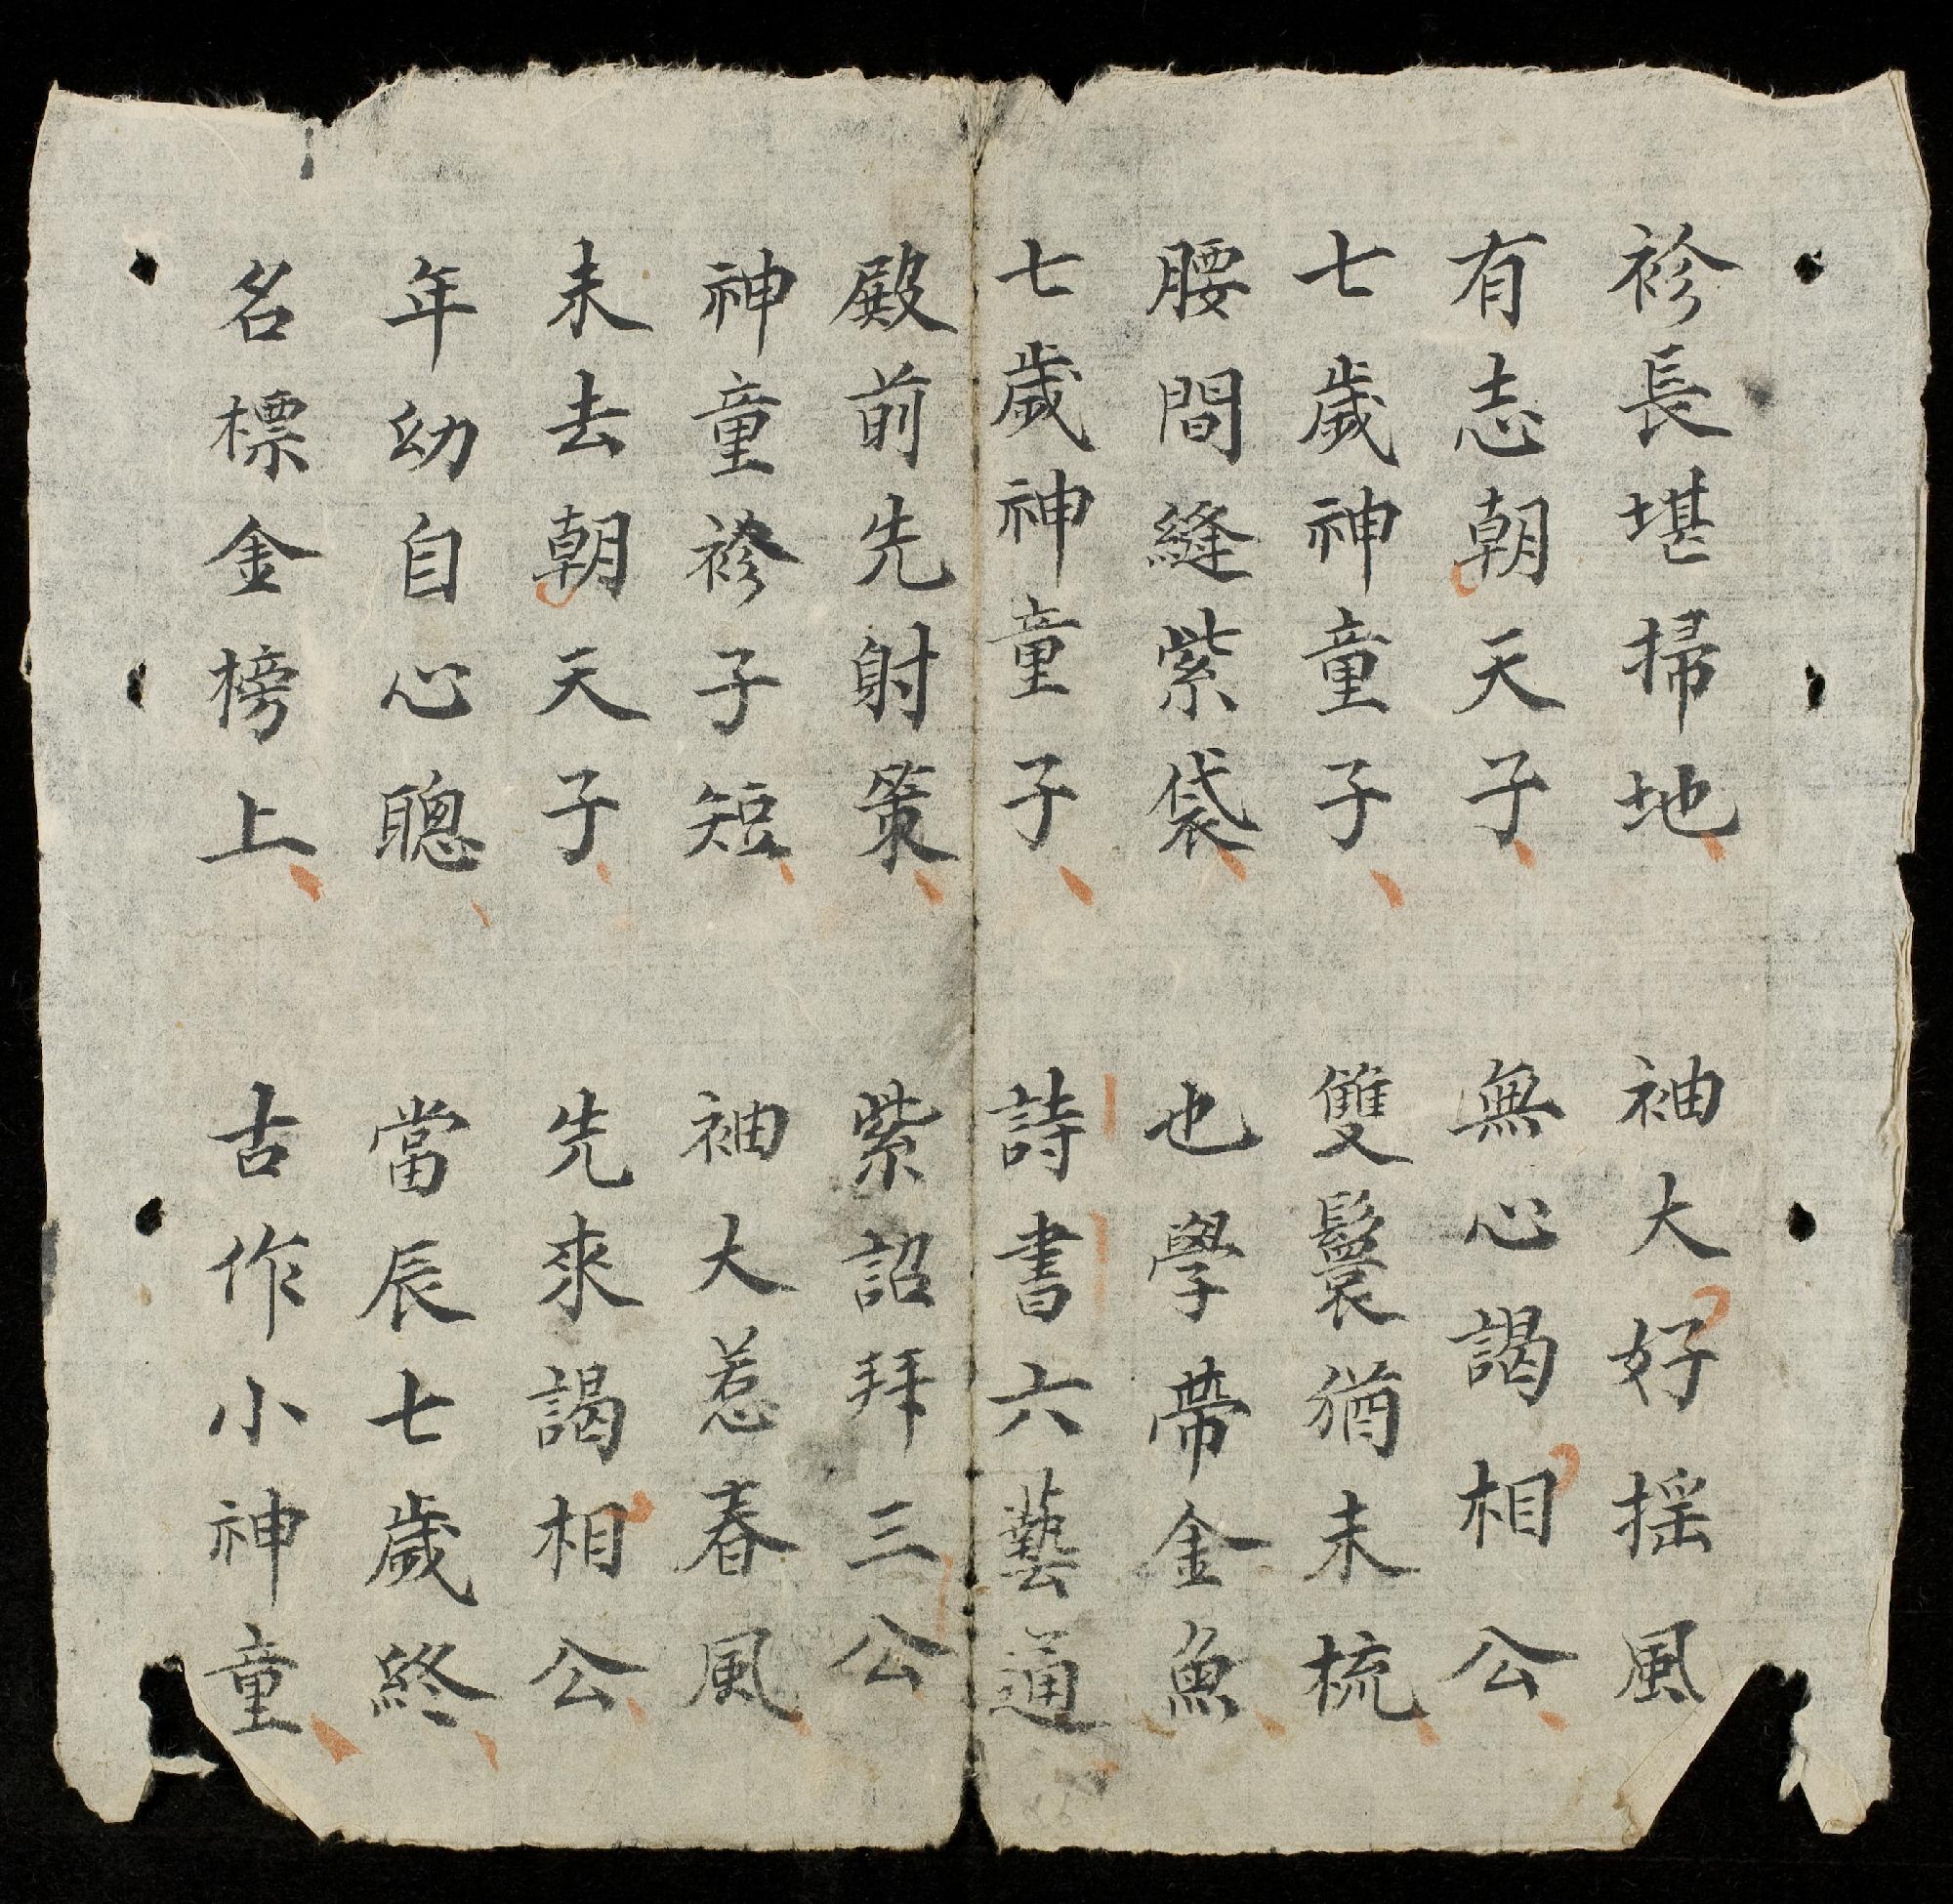 袗長堪掃地 袖大好揺風
有志朝天子 無心謁相公
七歲神童子 雙鬟猶未梳
腰間縫紫袋 也學帶金魚
七歲神童子 詩書六藝通
殿前先射策 紫詔拜三公
神童袗子短 袖大惹春風
未去朝天子 先來謁相公
年幼自心聰 當辰七歲終
名標金榜上 古作小神童